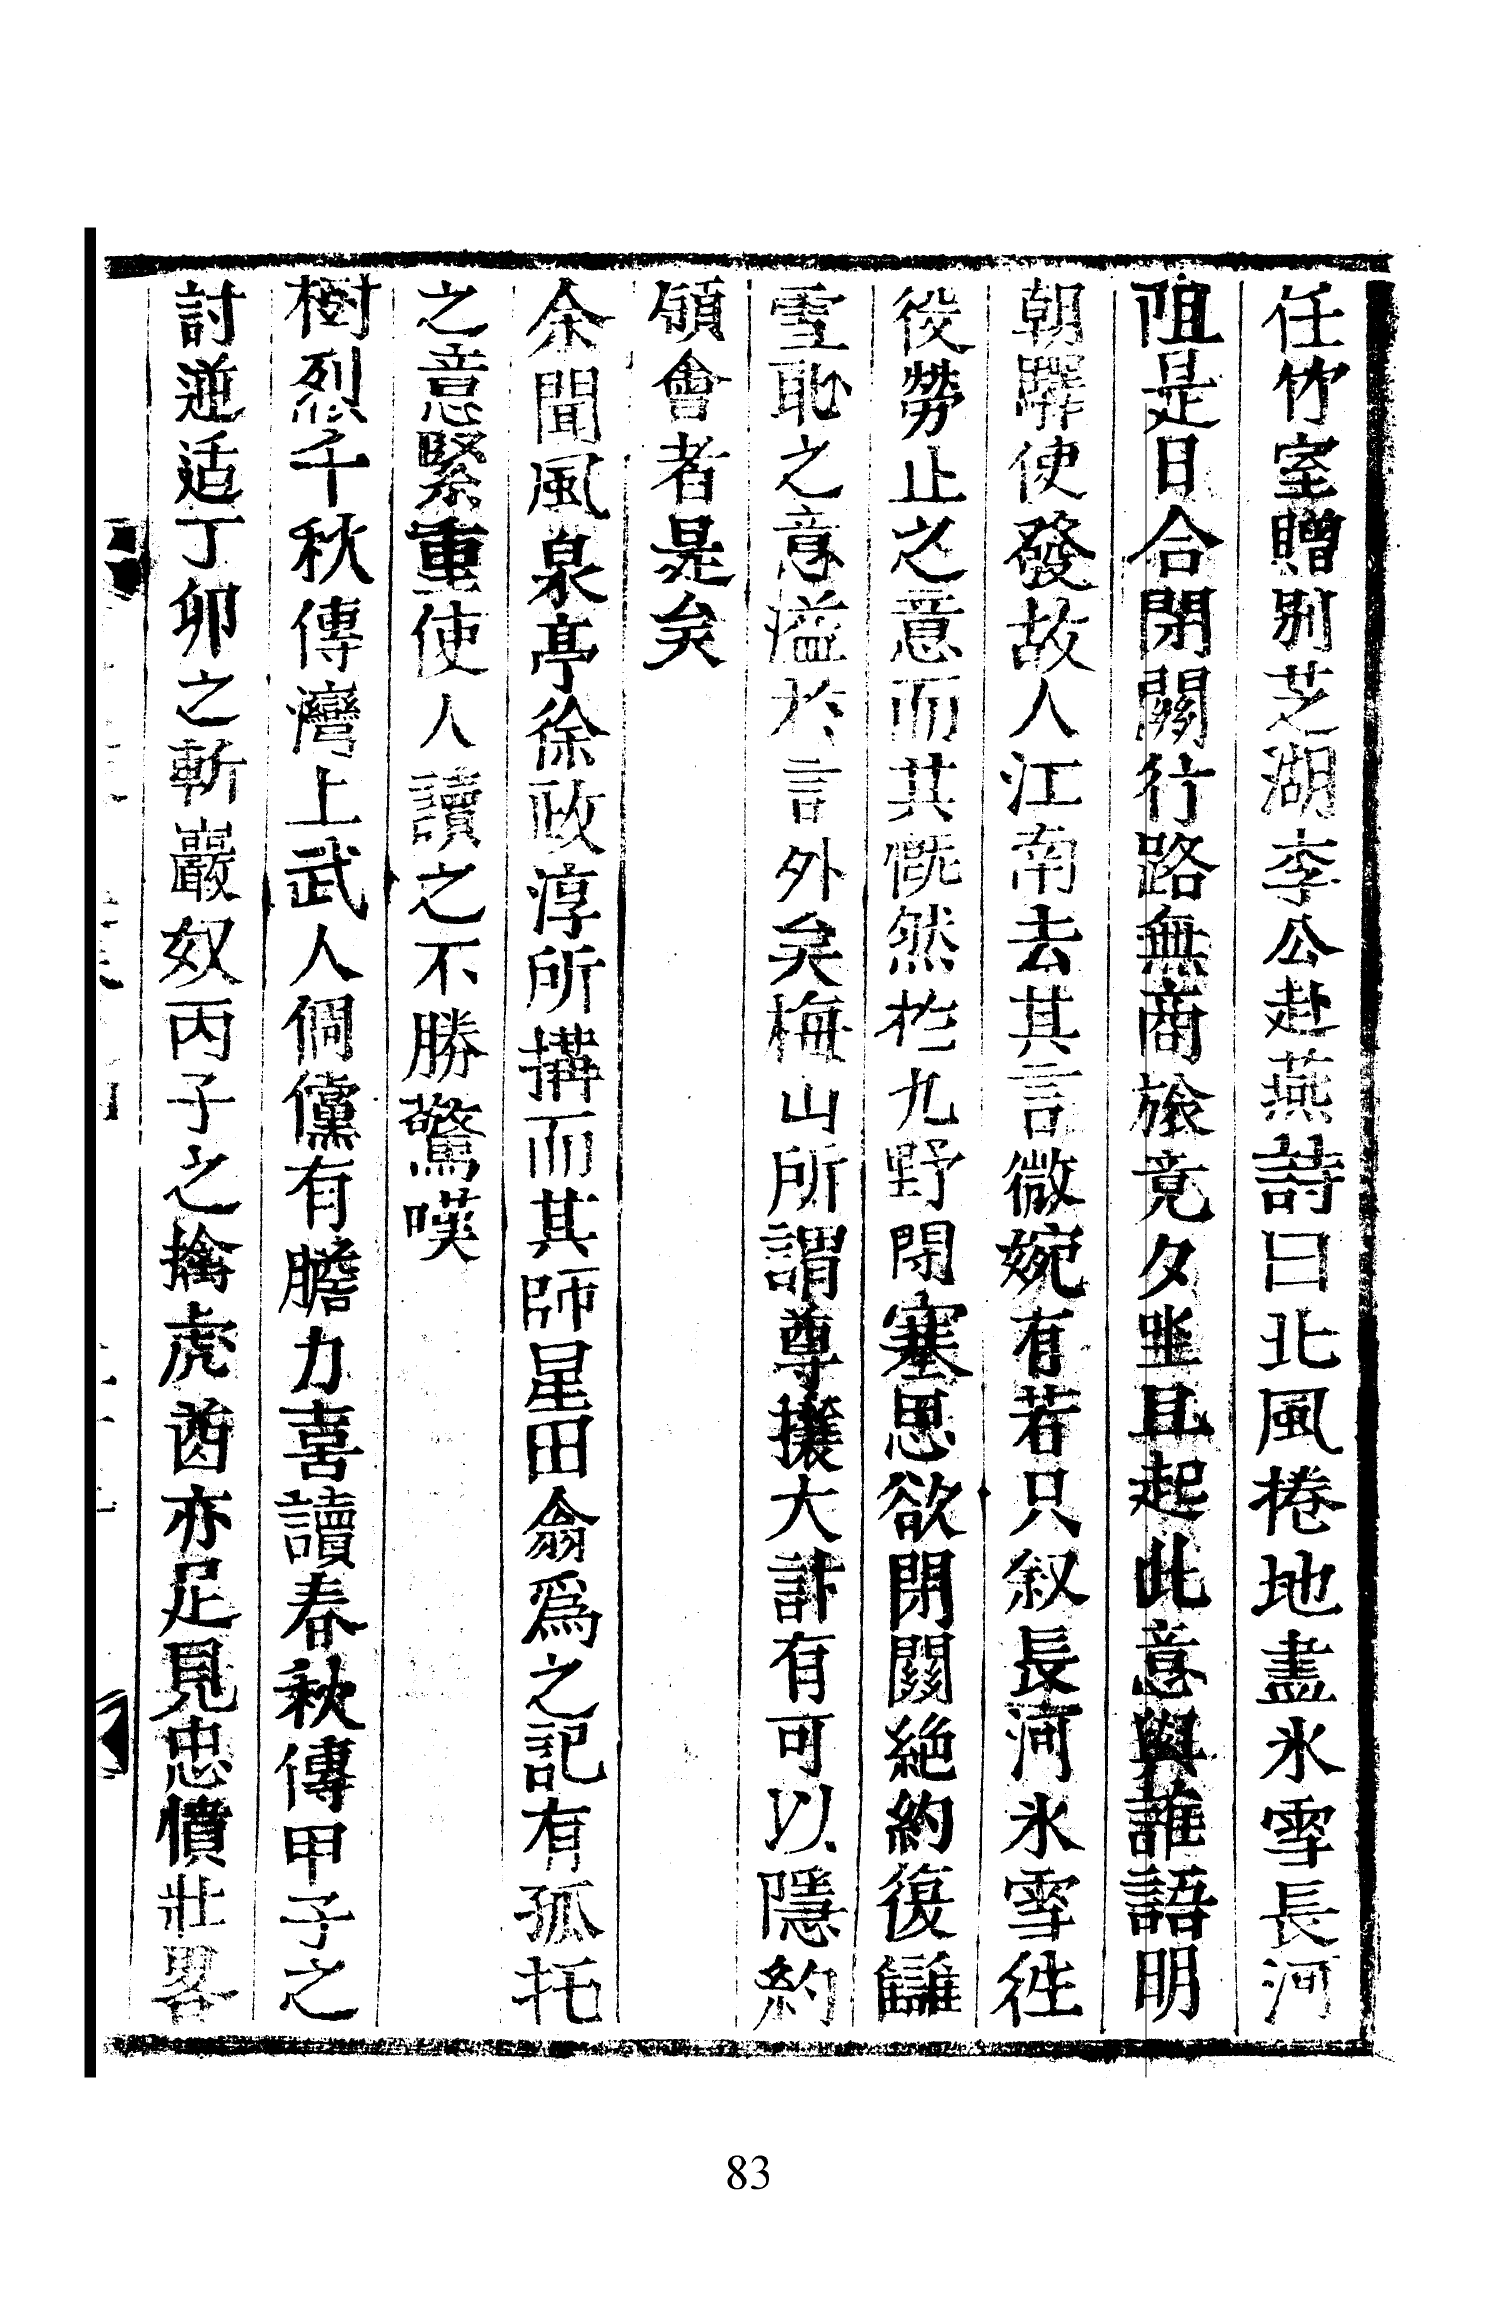 任竹室贈别芝湖李公赴燕詩曰北風捲地盡氷雪長河
阻是日合閉關行路無商旅竟夕聖且起此意與誰語明
朝驛使發故人江南去其言微婉有若只叙長河氷雪徃
役勞止之意而其慨然於九野閉塞思欲閉關絶約復讎
雪耻之意溢於言外矣梅山所謂尊攘大計有可以隱約
領會者是矣
余聞風泉亭徐政淳所搆而其師星田翁爲之記有孤托
之意緊重使人讀之不勝驚嘆
樹烈千秋傳灣上武人倜儻有膽力喜讀春秋傳甲子之
討逆适丁卯之斬巖奴丙子之擒虎酋亦足見忠憤壯畧
83